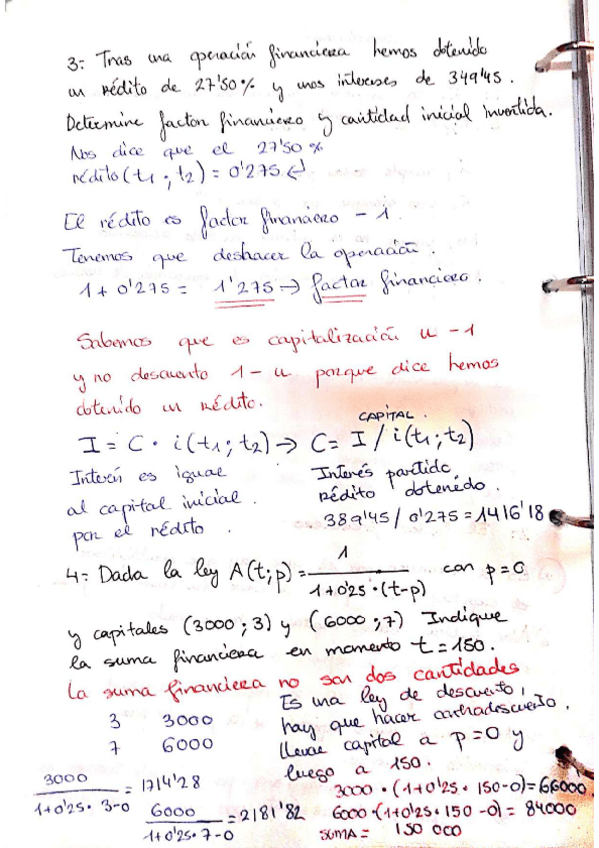 3:- Tras una operación financiera hemos obtenido
un rédito de 27'50% y unos intereses de 349'45.
Determine factor financiero y cantidad inicial invertida.
Nos dice que el 27'50%
rédito (t1 ; t2) = 0'275
El rédito es factor financiero - 1.
Tenemos que deshacer la operación.
1 + 0'275 = 1'275 → factor financiero.
Sabemos que es capitalización u - 1
y no descuento 1 - u porque dice hemos
obtenido un rédito.
CAPITAL.
I = C · i(t1; t2) → C = I / i(t1; t2)
Interés es igual
al capital inicial.
por el rédito.
Interés partido
rédito obtenido.
389'45 / 0'275 = 1416'18
4:- Dada la ley A(t;p) = 1 / 1+0'25·(t-p) con p=0
y capitales (3000 ; 3) y (6000 ; 7) Indique
la suma financiera en momento t = 150.
La suma financiera no son dos cantidades
3 3000
7 6000
Es una ley de descuento,
hay que hacer contradescuento.
llevar capital a p=0 y
luego a 150.
3000 / 1+0'25· 3-0 = 1714'28
6000 / 1+0'25·7-0 = 2181'82
3000 · (1+0'25 · 150-0) = 66000
6000 · (1+0'25 · 150 -0) = 84000
SUMA = 150 000